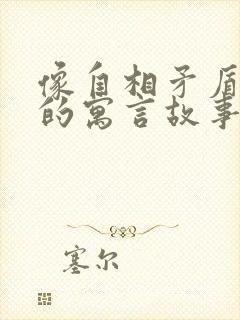 像自相矛盾
的寓言故事
塞尔